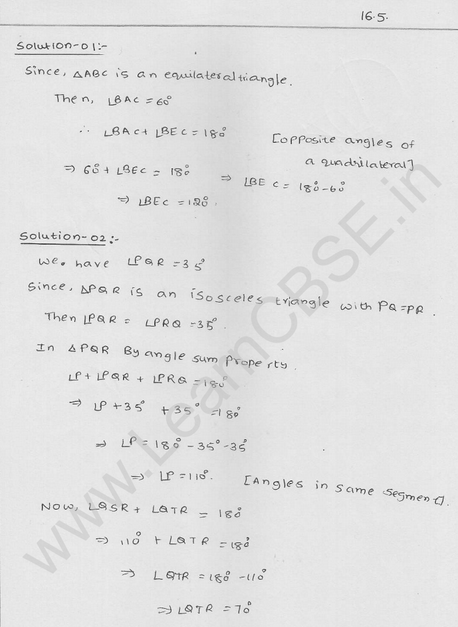 16.5.
Solution-01:-
Since, △ABC is an equilateral triangle.
Then, ∠BAC = 60°
∴ ∠BAC + ∠BEC = 180° [opposite angles of
a quadrilateral]
⇒ 60° + ∠BEC = 180° ⇒ ∠BEC = 180° - 60°
⇒ ∠BEC = 120°.
Solution-02:-
We have ∠PQR = 35°
Since, △PQR is an isosceles triangle with PQ = PR.
Then ∠PQR = ∠PRQ = 35°.
In △PQR By angle sum Property.
∠P + ∠PQR + ∠PRQ = 180°
⇒ ∠P + 35° + 35° = 180°
⇒ ∠P = 180° - 35° - 35°
⇒ ∠P = 110°. [Angles in same segment].
Now, ∠QSR + ∠QTR = 180°
⇒ 110° + ∠QTR = 180°
⇒ ∠QTR = 180° - 110°
⇒ ∠QTR = 70°
www.LearnCBSE.in